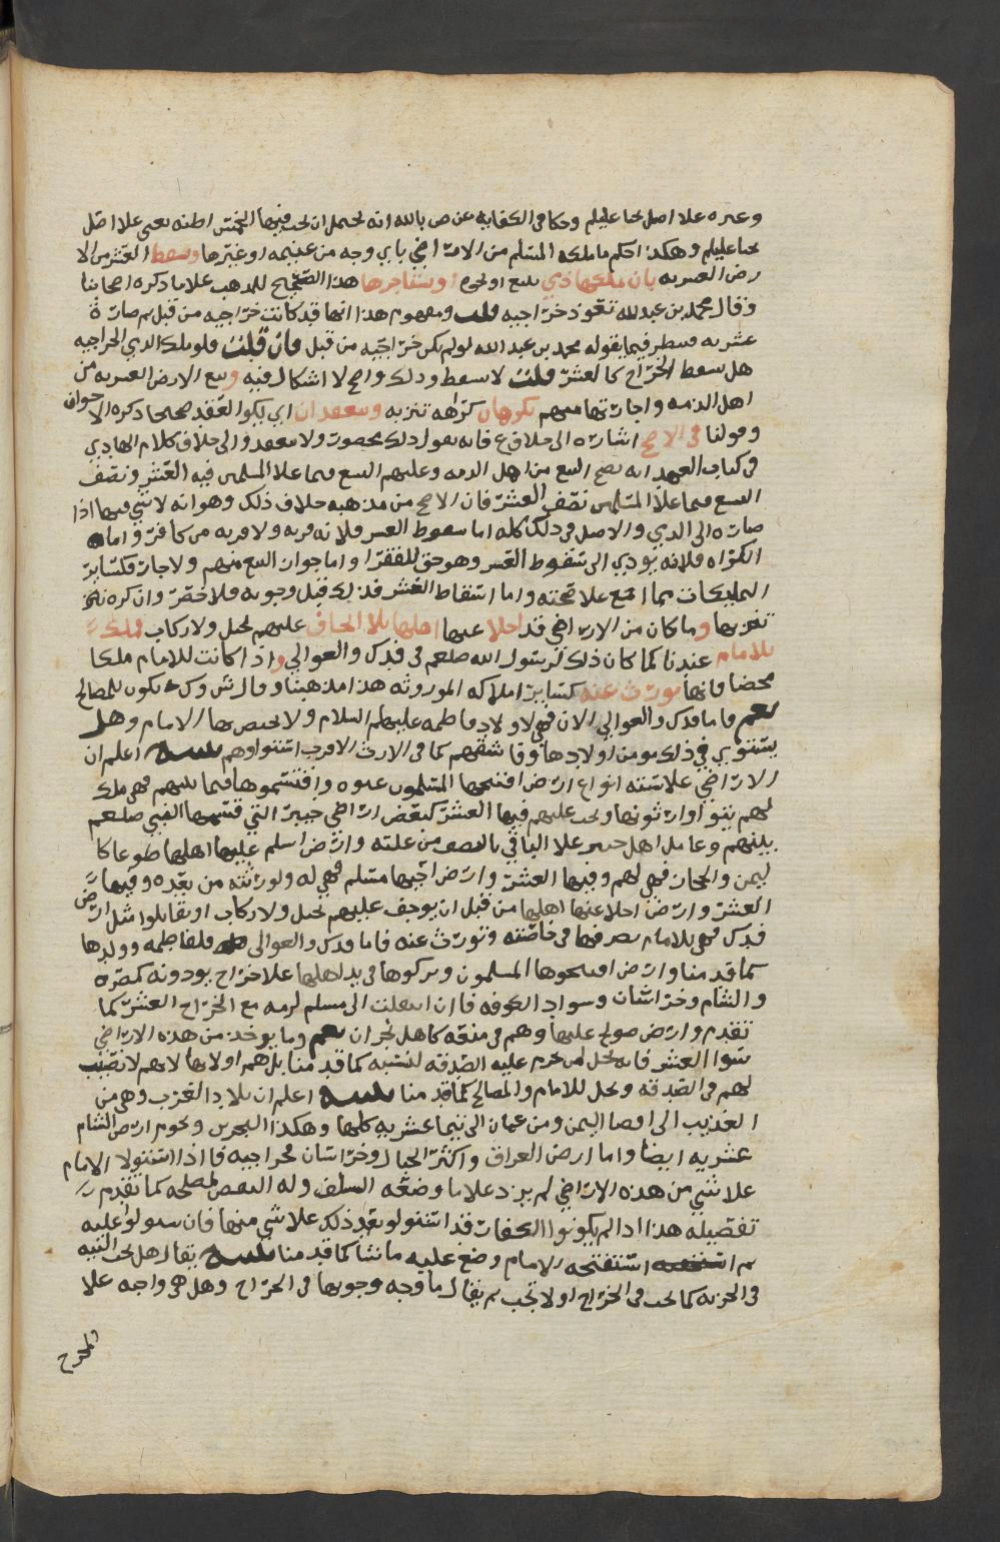 وعىره علا اصل ىحىا علىلىم وحكا فى الكفاىه عن ص بالله انه ىحىمل ان ىجب فيها الخمس اطنه ىعىى علا اصل
ىحىا علىلىم وهكذا احكم ما ملكه المسلم من الاراضي باي وجه من غنيمه او غيرها وىسعط العشر من الا
رض العسرىه بان ىملكها ذمي ىىىع او ىحوه او ىستاجرها هذا الصحيح للمذهب علا ما ذكره اصحابنا
وقال محمد بن عبدالله تعود خراجيه قلت ومفهوم هذا انها قد كانت خراجيه من قبل ىم صارة
عشريه فىىطر فيما يقوله محمد بن عبد الله لو لم ىكن خراجيه من قبل فان قلت فلو ملك الدمي الخراجيه
هل ىسعط الخراج كالعشر قلت لا ىسعط وذلك واضح لا اشكال فيه وىىع الارض العسرىه من
اهل الذمه واجارتها منهم مكروهان كراهه تنزيه وىىعقدان اي يكون العقد صحىحا ذكره الاخوان
وقولنا فى الاصح اشاره الى خلاف ع فانه ىقول ذلك محصور ولا ىىعقد والى خلاف كلام الهادي
فى كتاب العهد انه ىصح البىع من اهل الذمه وعليهم التسع فىما علا المسلمىن فيه العشر ونصف
التسع فىما علا المسلمىن نصف العشر فان الاصح من مذهبه خلاف ذلك وهو انه لا شي فيها اذا
صاره الى الذمي والاصل فى ذلك كله اما سقوط العسر فلانه قربه ولا قربه من كافر واما
الكراه فلانه يودي الى سقوط العسر وهو حق للفقرا واما جوان البىع منهم والاجار فكساىر
التمليكات مما اجمع علا صحته واما اسقاط العشر فذلك قبل وجوبه فلا حضر وان كره
تعرىها وما كان من الاراضي قد اجلا عنها اهلها بلا اىجاف عليهم ىخىل ولا ركاب ملك
للامام عندنا كما كان ذلك لرسول الله صلعم فى فدك والعوالي واذا كانت للامام ملكا
محضا فانها ىورث عنه كساىر املاكه الموروثه هذا مذهبنا وقال ش وك ىكون للمصالح
ىعم فاما فدك والعوالي الان فهي لاولاد فاطمه عليهم السلام ولا ىختص بها الامام وهل
يستوي في ذلك مومن اولادها وفاسقهم كما فى الارث الاقرب استواوهم ىىىىه اعلم ان
الاراضي علا سته انواع ارض افتتحها المسلمون عىوه واقتسموها فيما بينهم فهي ملك
لهم يتوارثونها وىجب عليهم فيها العشر كبعض اراضي خيبر التي قسمها النبي صلعم
بينهم وعامل اهل خىىر علا الباقي بالنصف من غلته وارض اسلم عليها اهلها طوعا كا
ليمن والحجاز فهي لهم وفيها العشر وارض احيها مسلم فهي له ولورثته من بعده وفيها
العشر وارض اجلا عنها اهلها من قبل ان يوجف عليهم ىخىل ولا ركاب او ىقاتلوا مثل ارض
فدك فهي للامام ىصرفها فى خاصته وتورث عنه فاما فدك والعوالي فلفاطمه وولدها
كما قدمنا وارض افتتحوها المسلمون وىركوها فى يد اهلها علا خراج يودونه كمصر
والشام وخراسان وسواد الكوفه فان انىقلت الى مسلم لزمه مع الخراج العشر كما
تقدم وارض صولح عليها وهم فى منعه كاهل نجران ىعم وما يوخذ من هذه الاراضي
سوا العشر فانه ىحل لمن ىحرم عليه الصدقه لنسبه كما قدمنا بل هم اولا بها لانهم لا نصيب
لهم فى الصدقه وىحل للامام والمصالح كما قدمنا ىىىىه اعلم ان بلاد العرب وهى من
العذيب الى اقصا اليمن ومن عمان الى تيما عشريه كلها وهكذا البحرىن وىخوم ارض الشام
عشريه ايضا واما ارض العراق واكثر الجبال وخراسان فخراجيه فاذا استولا الامام
علا شي من هذه الاراضي لم يزد علا ما وضعه السلف وله النقص لمصلحه كما تقدم
تفصيله هذا اذا لم يكونوا الكفار قد استولو بعد ذلك علا شي منها فان ىىولوا علىه
ىم استفتحه الامام وضع عليه ما شا كما قدمنا ىىىىه يقال هل ىجب النيه
فى الجزىه كما ىجب فى الخراج او لا ىجب ىم يقال ما وجه وجوبها فى الخراج وهل هى واجبه علا
المخرج